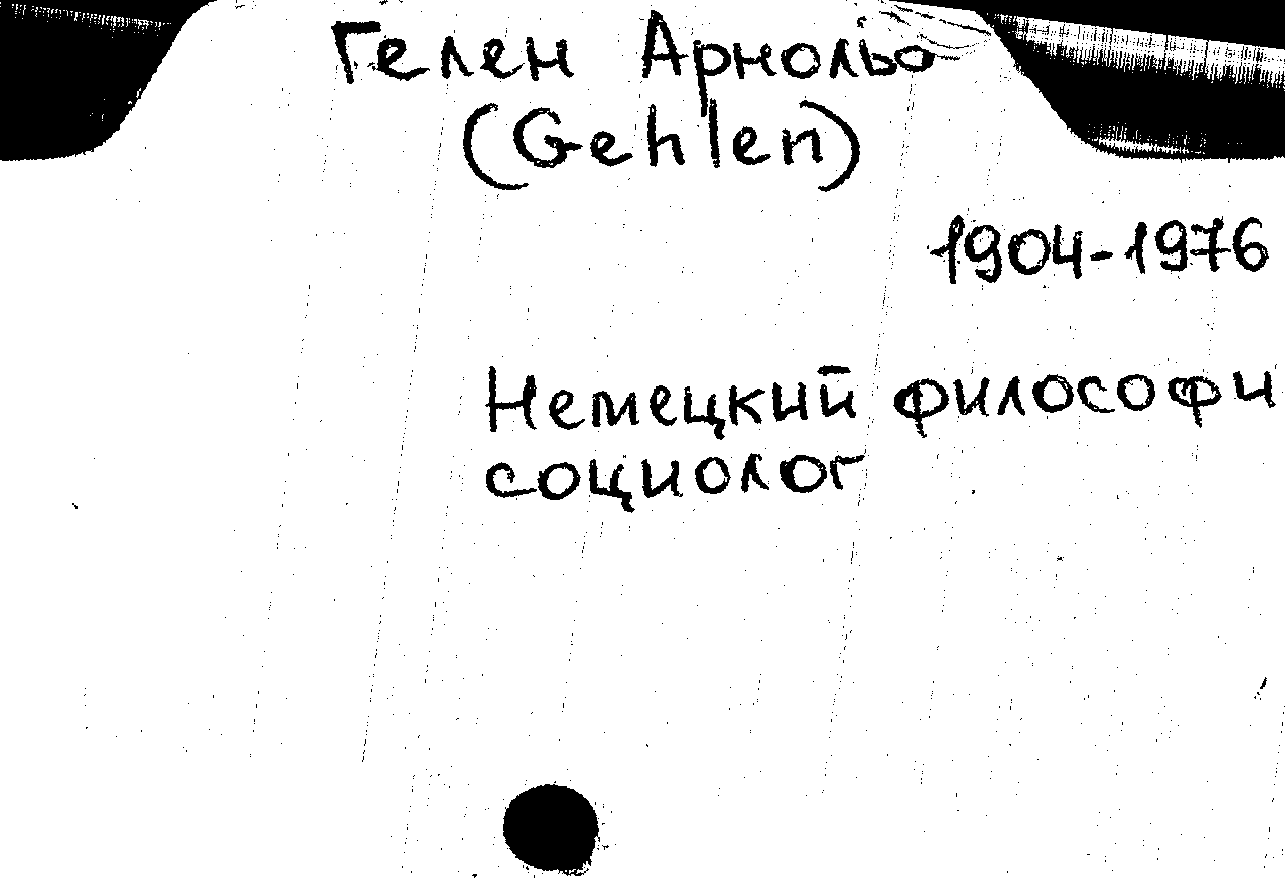 Гелен Арнольд
(Gehlen)
1904-1976
Немецкий философ и
социолог